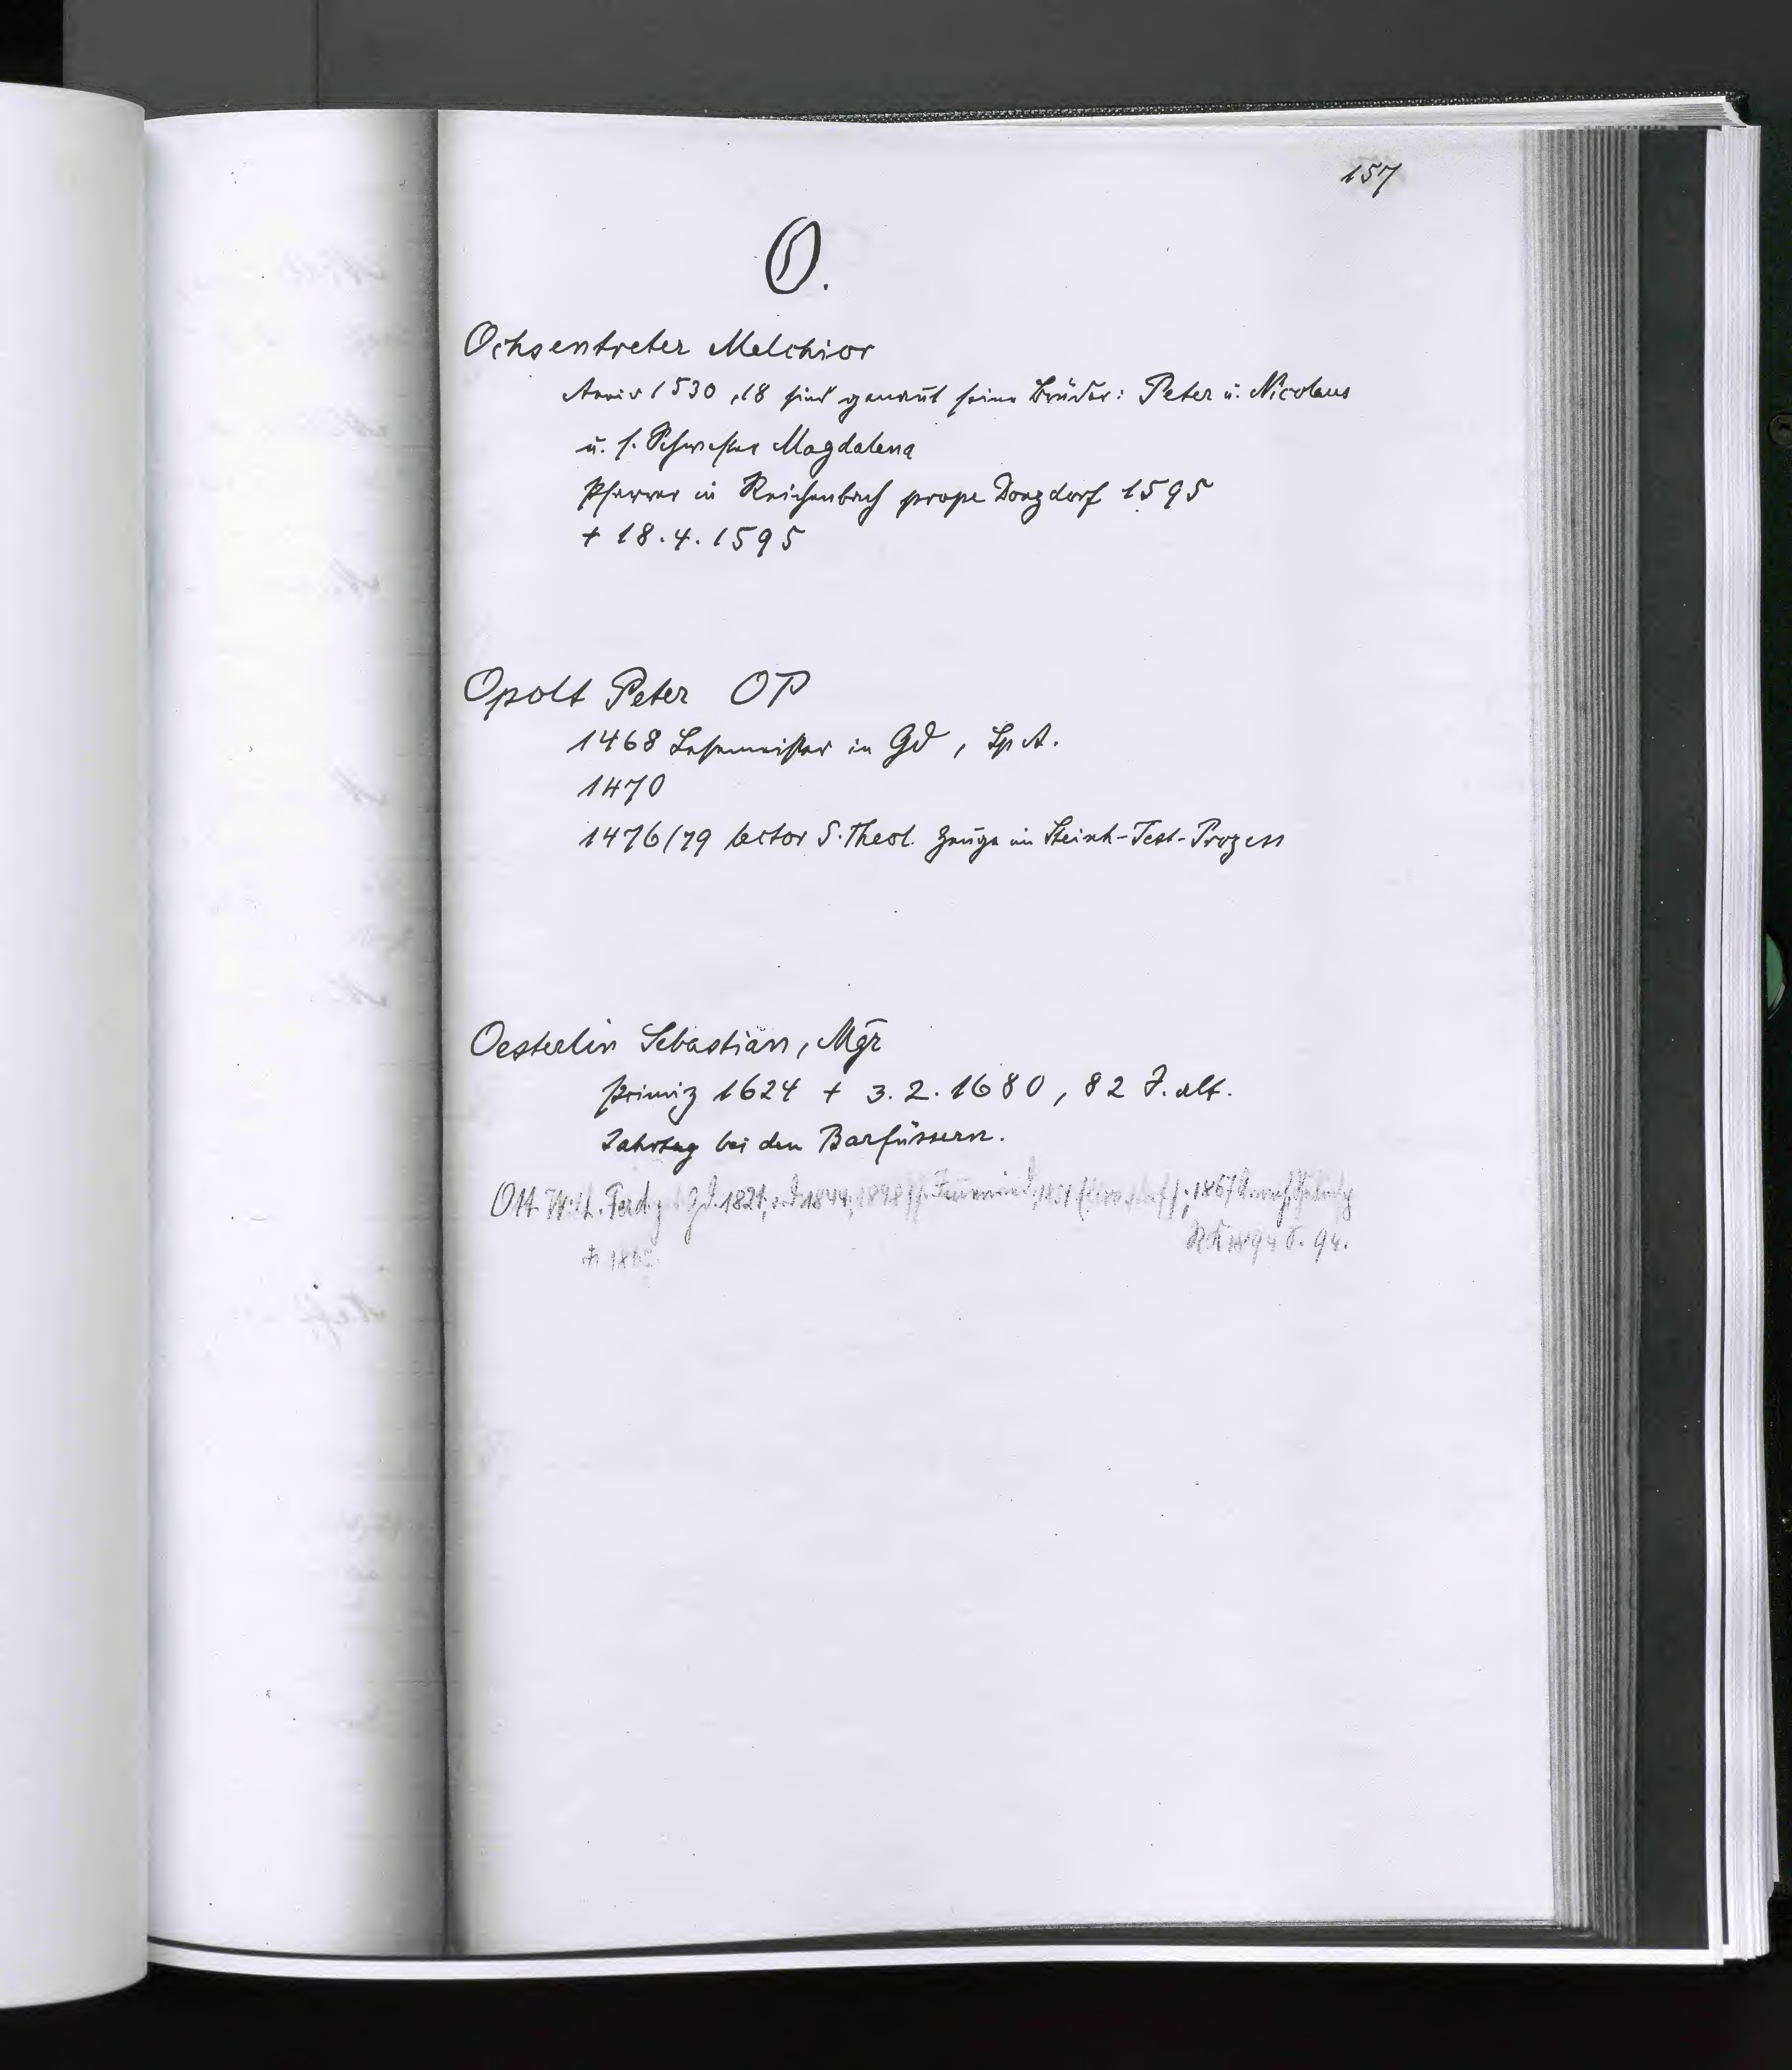 157
O.
Ochsentreter Melchior
Anniv 1530, 18 sind genannt seine Brüder: Peter u. Nicolaus
u. s. Schwester Magdalena
Pfarrer in Reichenbach prope Donzdorf 1595
+ 18.4.1595
Opolt Peter OP
1468 Lesemeister in Gd, Sp A.
1470
1476/79 lector S. Theol. Zeuge im Steinh-Test-Prozess
Oesterlin Sebastian, Mgr
Primiz 1624 + 3.2.1680, 82 J. alt.
Jahrtag bei den Barfüssern.
Ott Wilh. Ferd. Gd. 1821; 1844; 1851 1867
1894 S. 94.